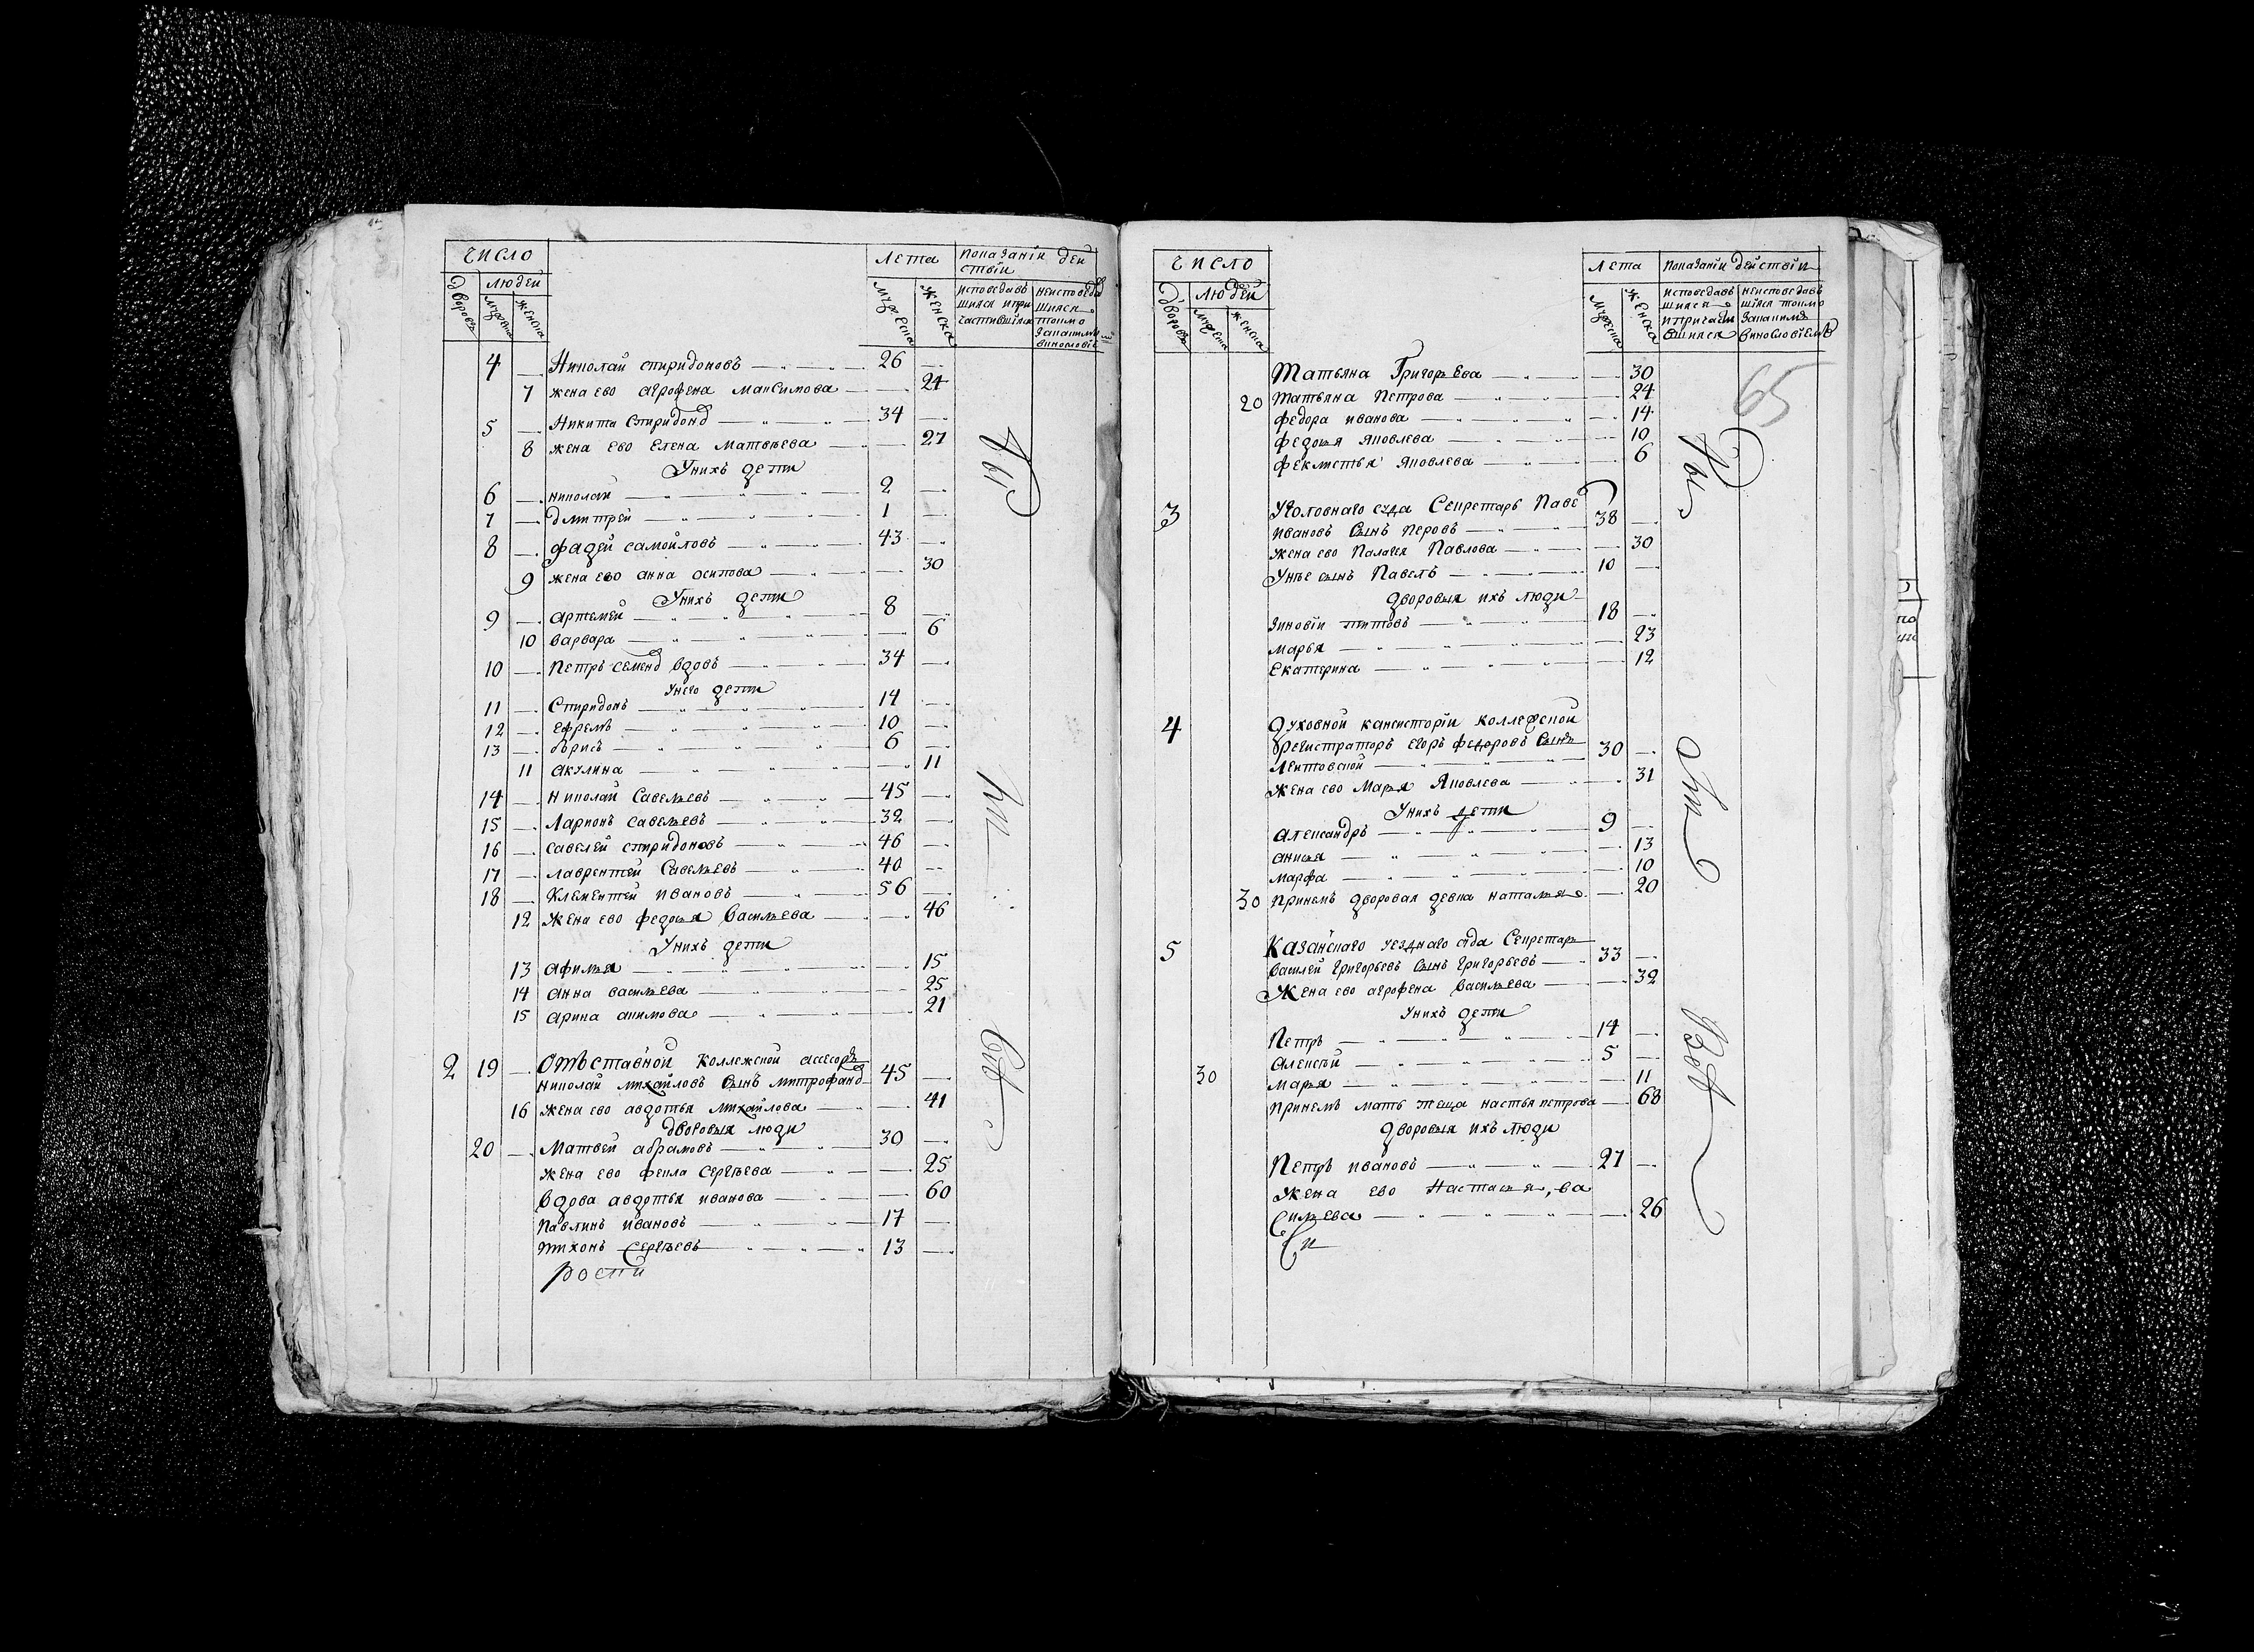 Число
Лета
Показанiи деи
ствiи
дворовъ
людей
мужеска
женска
мужеска
женска
исповедавъ
шихся и при
частившихся
неисповеда
шихся
токмо
4 Николай спиридоновъ 26
7 жена ево агрофена максимова 24
5 Никита Спиридонов 34
8 жена ево Елена Матвѣева 27
Унихъ дети
6 николай 2
7 дмитрей 1
8 фадей самойловъ 43
9 жена ево анна осипова 30
Унихъ дети
9 артемей 8
10 варвара 6
10 Петръ семенов вдовъ 34
Унего дети
11 Спиридонъ 14
12 Ефремъ 10
13 борисъ 6
11 акулина 11
14 Николай Савельевъ 45
15 Ларионъ савельевъ 32
16 савелей спиридоновъ 46
17 лаврентей Савельевъ 40
18 Клементей ивановъ 56
12 жена ево федосья Васильева 46
Унихъ дети
13 афимья 15
14 анна васильева 25
15 арина акимова 21
2 19 Отъставной коллежской асесоръ
николай михайловъ сынъ митрофанов 45
16 жена ево авдотья михайлова 41
дворовыя люди
20 Матвей абрамовъ 30
жена ево фекла сергѣева 25
вдова авдотья иванова 60
павлинъ ивановъ 17
тихонъ сергѣевъ 13
Число
Лета
Показанiи действiи
дворовъ
людей
мужеска
женска
мужеска
женска
исповедавъ
шихся
и причасти
вшихся
неисповедавъ
шихся токмо
59
Татьяна Григорьева 30
20 татьяна Петрова 24
федора иванова 14
федосья яковлева 10
феклистья яковлева 6
3 Уголовнаго суда Секретарь Паве
ивановъ сынъ перовъ 38
жена ево Палагея Павлова 30
Унее сынъ Павелъ 10
дворовыя ихъ люди
зиновiи титовъ 18
марья 23
екатерина 12
4 духовной кансисторiи коллежской
регистраторъ егоръ федоровъ сынъ
Лентовской 30
жена ево Марья Яковлева 31
Унихъ дети
александръ 9
анисья 13
марфа 10
30 принемъ дворовая девка наталья 20
5 Казанскаго уезднаго суда Секретарь
василей григорьевъ сынъ григорьевъ 33
Жена ево агрофена васильева 32
Унихъ дети
Петръ 14
алексей 5
30 марья 11
принемъ мать теща настья петрова 68
дворовыя ихъ люди
Петръ ивановъ 27
жена ево Настасья, ва
сильева 26